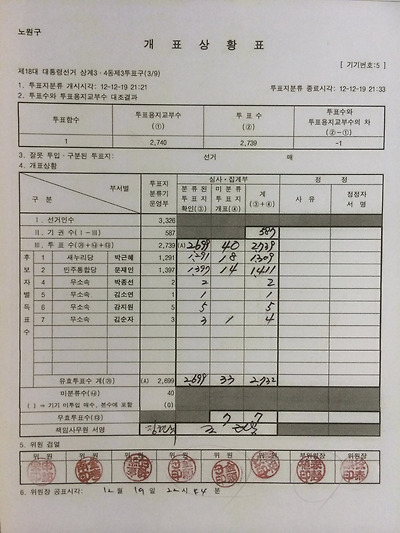 노원구
개 표 상 황 표
[ 기기번호:5 ]
제18대 대통령선거 상계3ㆍ4동제3투표구(3/9)
1. 투표지분류 개시시각: 12-12-19 21:21 투표지분류 종료시각: 12-12-19 21:33
2. 투표수와 투표용지교부수 대조결과
투표함수 투표용지교부수 (①) 투 표 수 (②) 투표수와 투표용지교부수의 차 (②-①)
1 2,740 2,739 -1
3. 잘못 투입ㆍ구분된 투표지: 선거 매
4. 개표상황
구 분 부서별 투표지 분류기 운영부 심사ㆍ집계부 정 정
분류된 투표지 확인(③) 미분류 투표지 개표(④) 계 (③+④) 사 유 정정자 서 명
Ⅰ. 선거인수 3,326
Ⅱ. 기 권 수 (Ⅰ-Ⅲ) 587 587
Ⅲ. 투 표 수 2,739 (A) 2,699 40 2,739
후보자별득표수
1 새누리당 박근혜 1,291 1,291 18 1,309
2 민주통합당 문재인 1,397 1,397 14 1,411
4 무소속 박종선 2 2 2
5 무소속 김소연 1 1 1
6 무소속 강지원 5 5 5
7 무소속 김순자 3 3 1 4
유효투표수 계 (A) 2,699 2,699 33 2,732
미분류수 40
( ) ⇒ 기기 미투입 매수, 본수에 포함 (0)
무효투표수 7 7
책임사무원 서명
5. 위원 검열
위 원 위 원 위 원 위 원 위 원 위 원 부위원장 위원장
6. 위원장 공표시각: 12 월 19 일 22 시 54 분